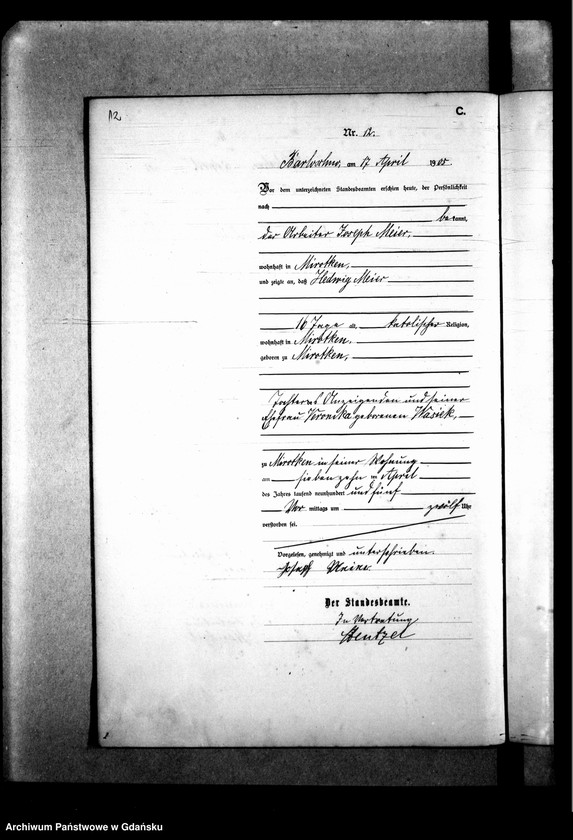 12.
C.
Nr. 12.
am 17 April 1905.
Vor dem unterzeichneten Standesbeamten erschien heute, der Persönlichkeit
nach
be kannt,
der Arbeiter Joseph Meier,
wohnhaft in Mirotken,
und zeigte an, daß Hedwig Meier
16 Tage alt, katolischer Religion,
wohnhaft in Mirotken,
geboren zu Mirotken,
Tochter des Anzeigenden und seiner
Ehefrau Veronika geborenen Wasiek,
zu Mirotken in seiner Wohnung
am siebenzehn ten April
des Jahres tausend neunhundert und fünf
Vor mittags um zwölf Uhr
verstorben sei.
Vorgelesen, genehmigt und unterschrieben.
Josef
Der Standesbeamte.
In Vertretung
Hentzel
Archiwum Państwowe w Gdańsku